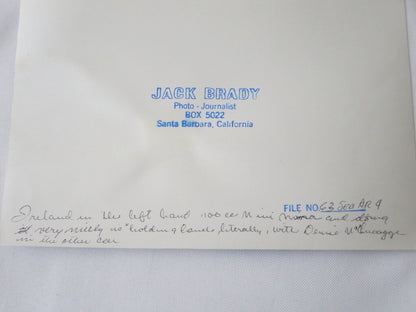 JACK BRADY
Photo - Journalist
BOX 5022
Santa Barbara, California
FILE NO. 63 Seb AR 9
Ireland in the left hand 1100 cc Mini and doing
very nicely as "holding hands literally, with Denise McCluggage
in the other car